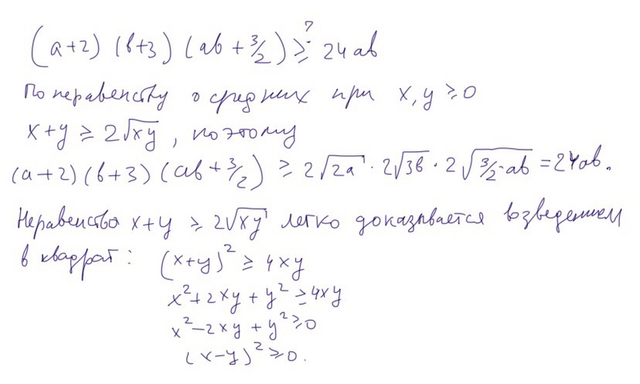 (a+2)(b+3)(ab+3/2) ≥? 24ab
По неравенству о средних при x,y ≥ 0
x+y ≥ 2√xy, поэтому
(a+2)(b+3)(ab+3/2) ≥ 2√2a · 2√3b · 2√3/2·ab = 24ab.
Неравенства x+y ≥ 2√xy легко доказывается возведением
в квадрат: (x+y)² ≥ 4xy
x²+2xy+y² ≥ 4xy
x²-2xy+y² ≥ 0
(x-y)² ≥ 0.